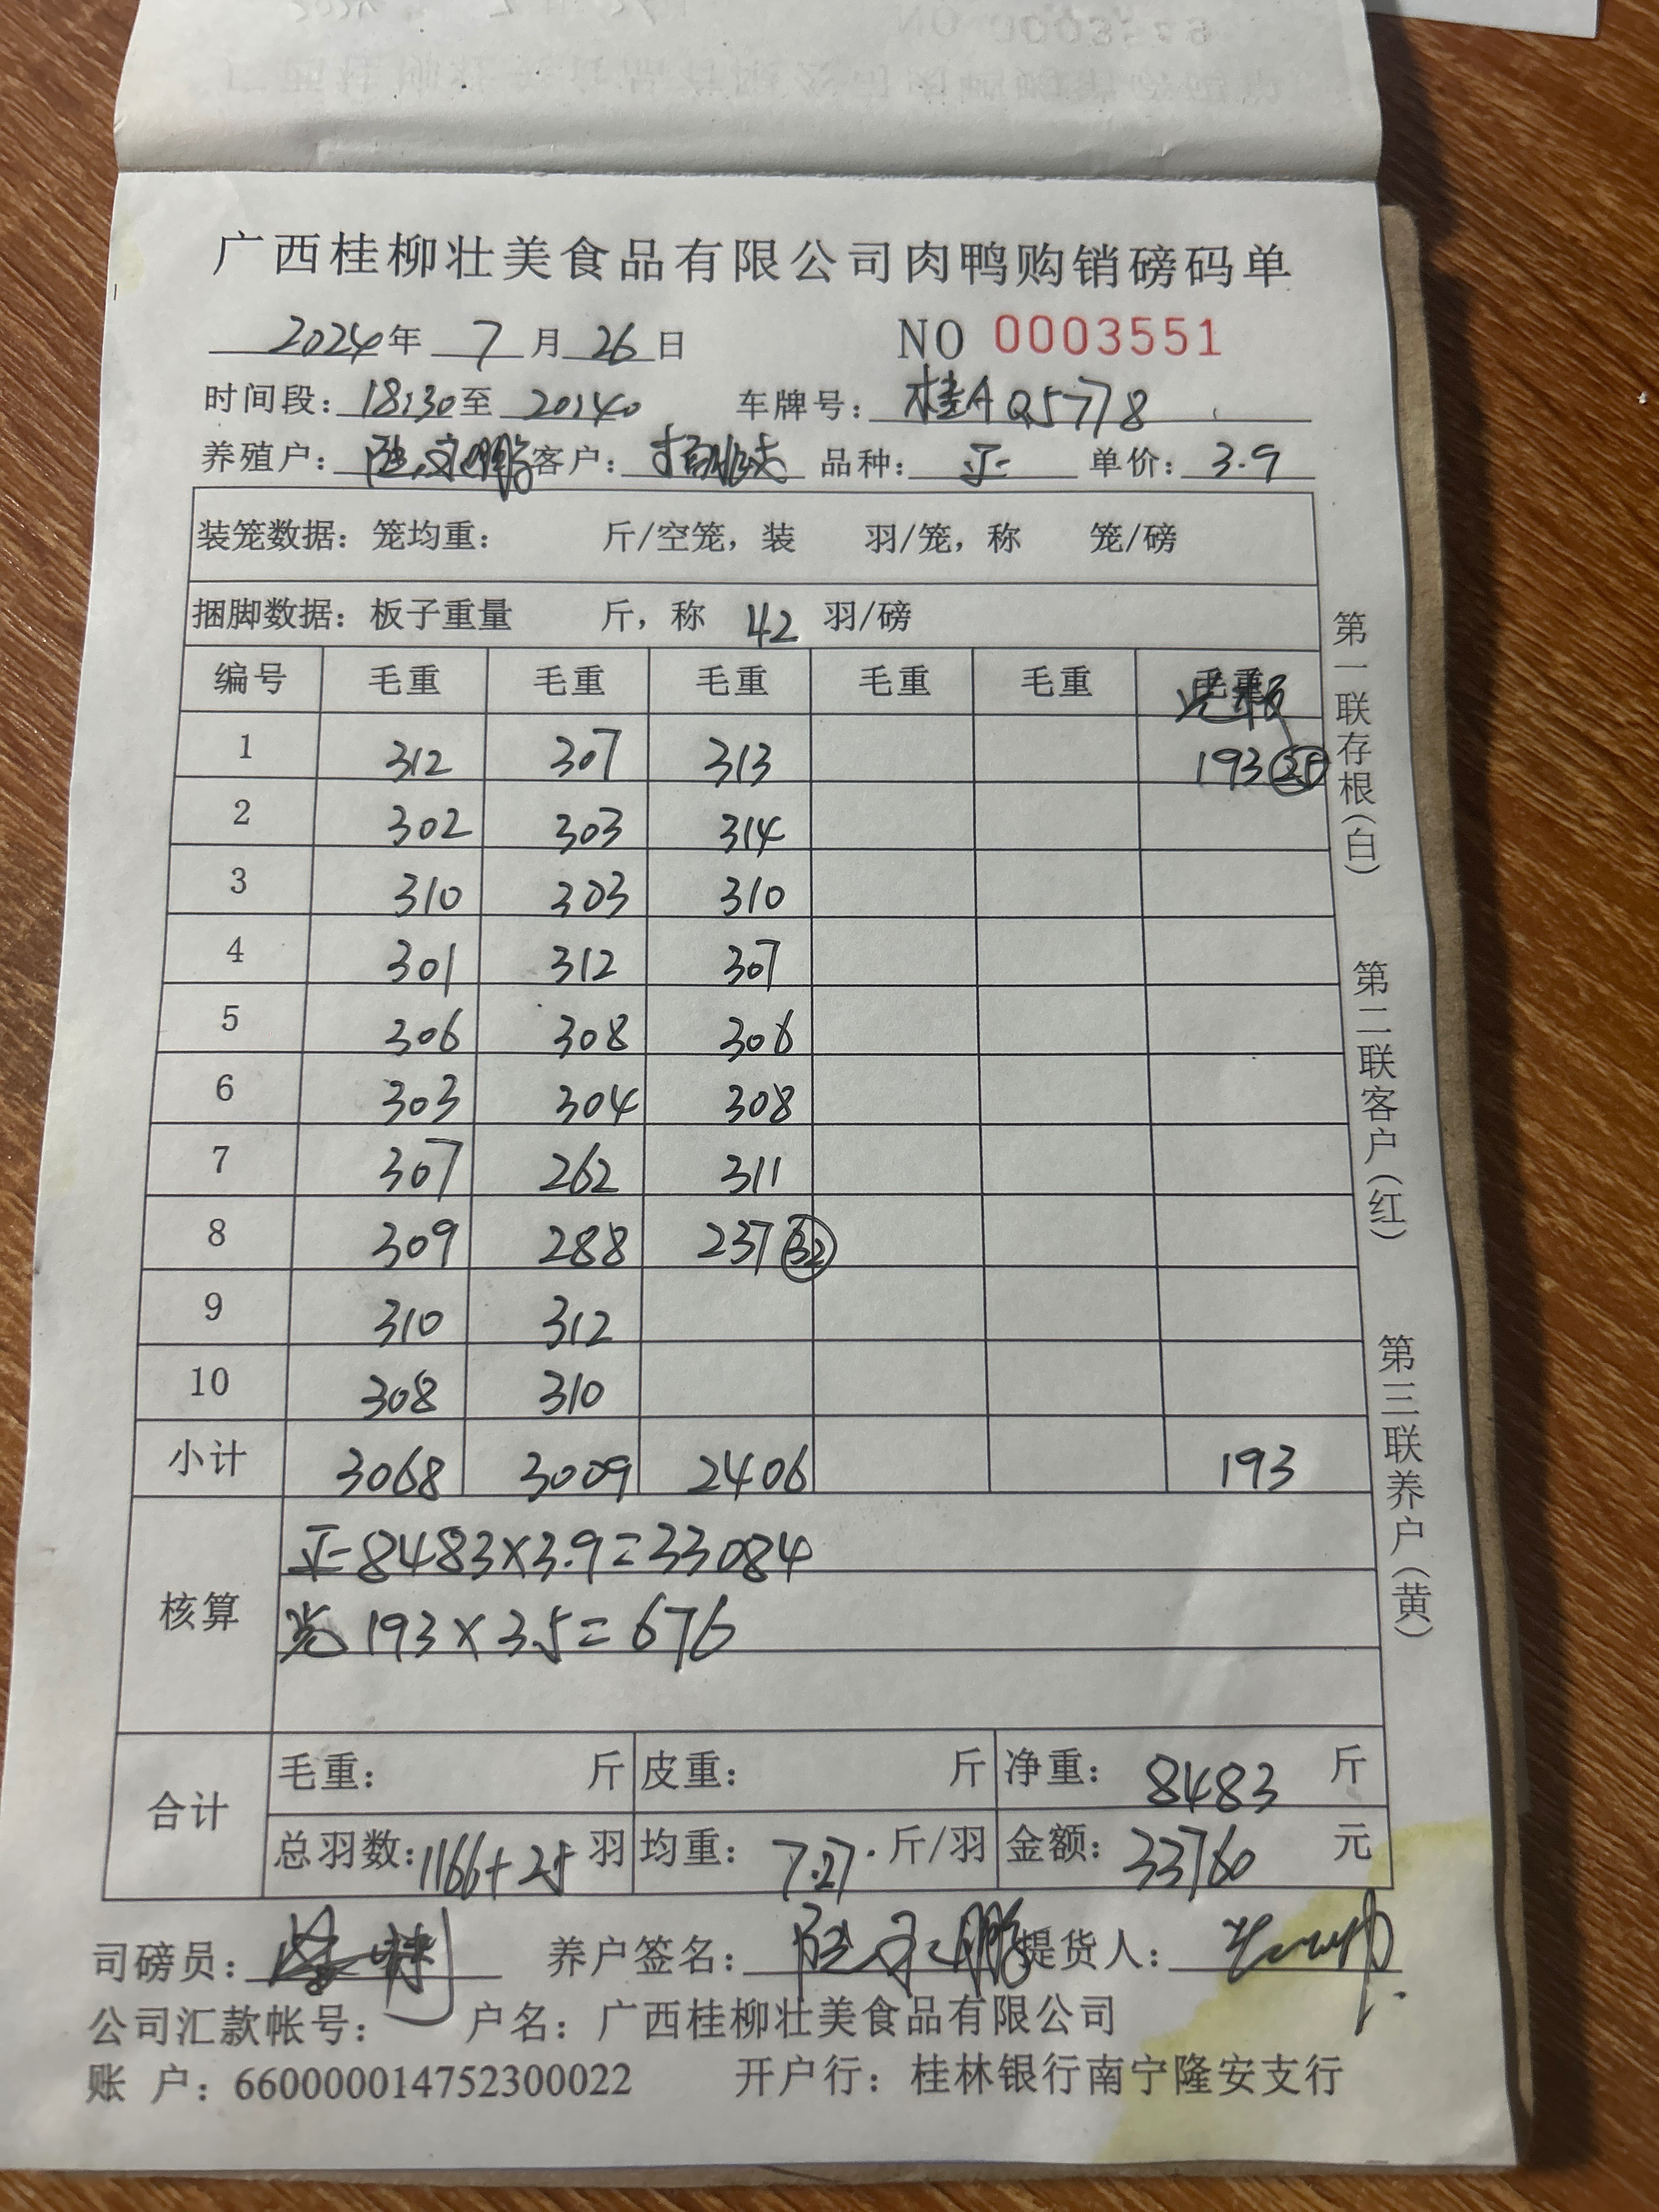 广西桂柳壮美食品有限公司肉鸭购销磅码单
2024年 7月26日 NO 0003551
时间段：18:30至 20:40 车牌号：桂A Q5778
养殖户： 客户： 品种：正 单价：3.9
装笼数据：笼均重： 斤/空笼，装 羽/笼，称 笼/磅
捆脚数据：板子重量 斤，称 42 羽/磅
编号 毛重 毛重 毛重 毛重 毛重 毛重
1 312 307 313 193 25
2 302 303 314
3 310 303 310
4 301 312 307
5 306 308 306
6 303 304 308
7 307 262 311
8 309 288 237 32
9 310 312
10 308 310
小计 3068 3009 2406 193
核算
正 8483×3.9=33084
193×3.5=676
合计
毛重： 斤 皮重： 斤 净重：8483 斤
总羽数：1166+25 羽 均重：7.27. 斤/羽 金额：33760 元
司磅员： 养户签名： 提货人：
公司汇款帐号： 户名：广西桂柳壮美食品有限公司
账 户：660000014752300022 开户行：桂林银行南宁隆安支行
第一联存根（白）
第二联客户（红）
第三联养户（黄）